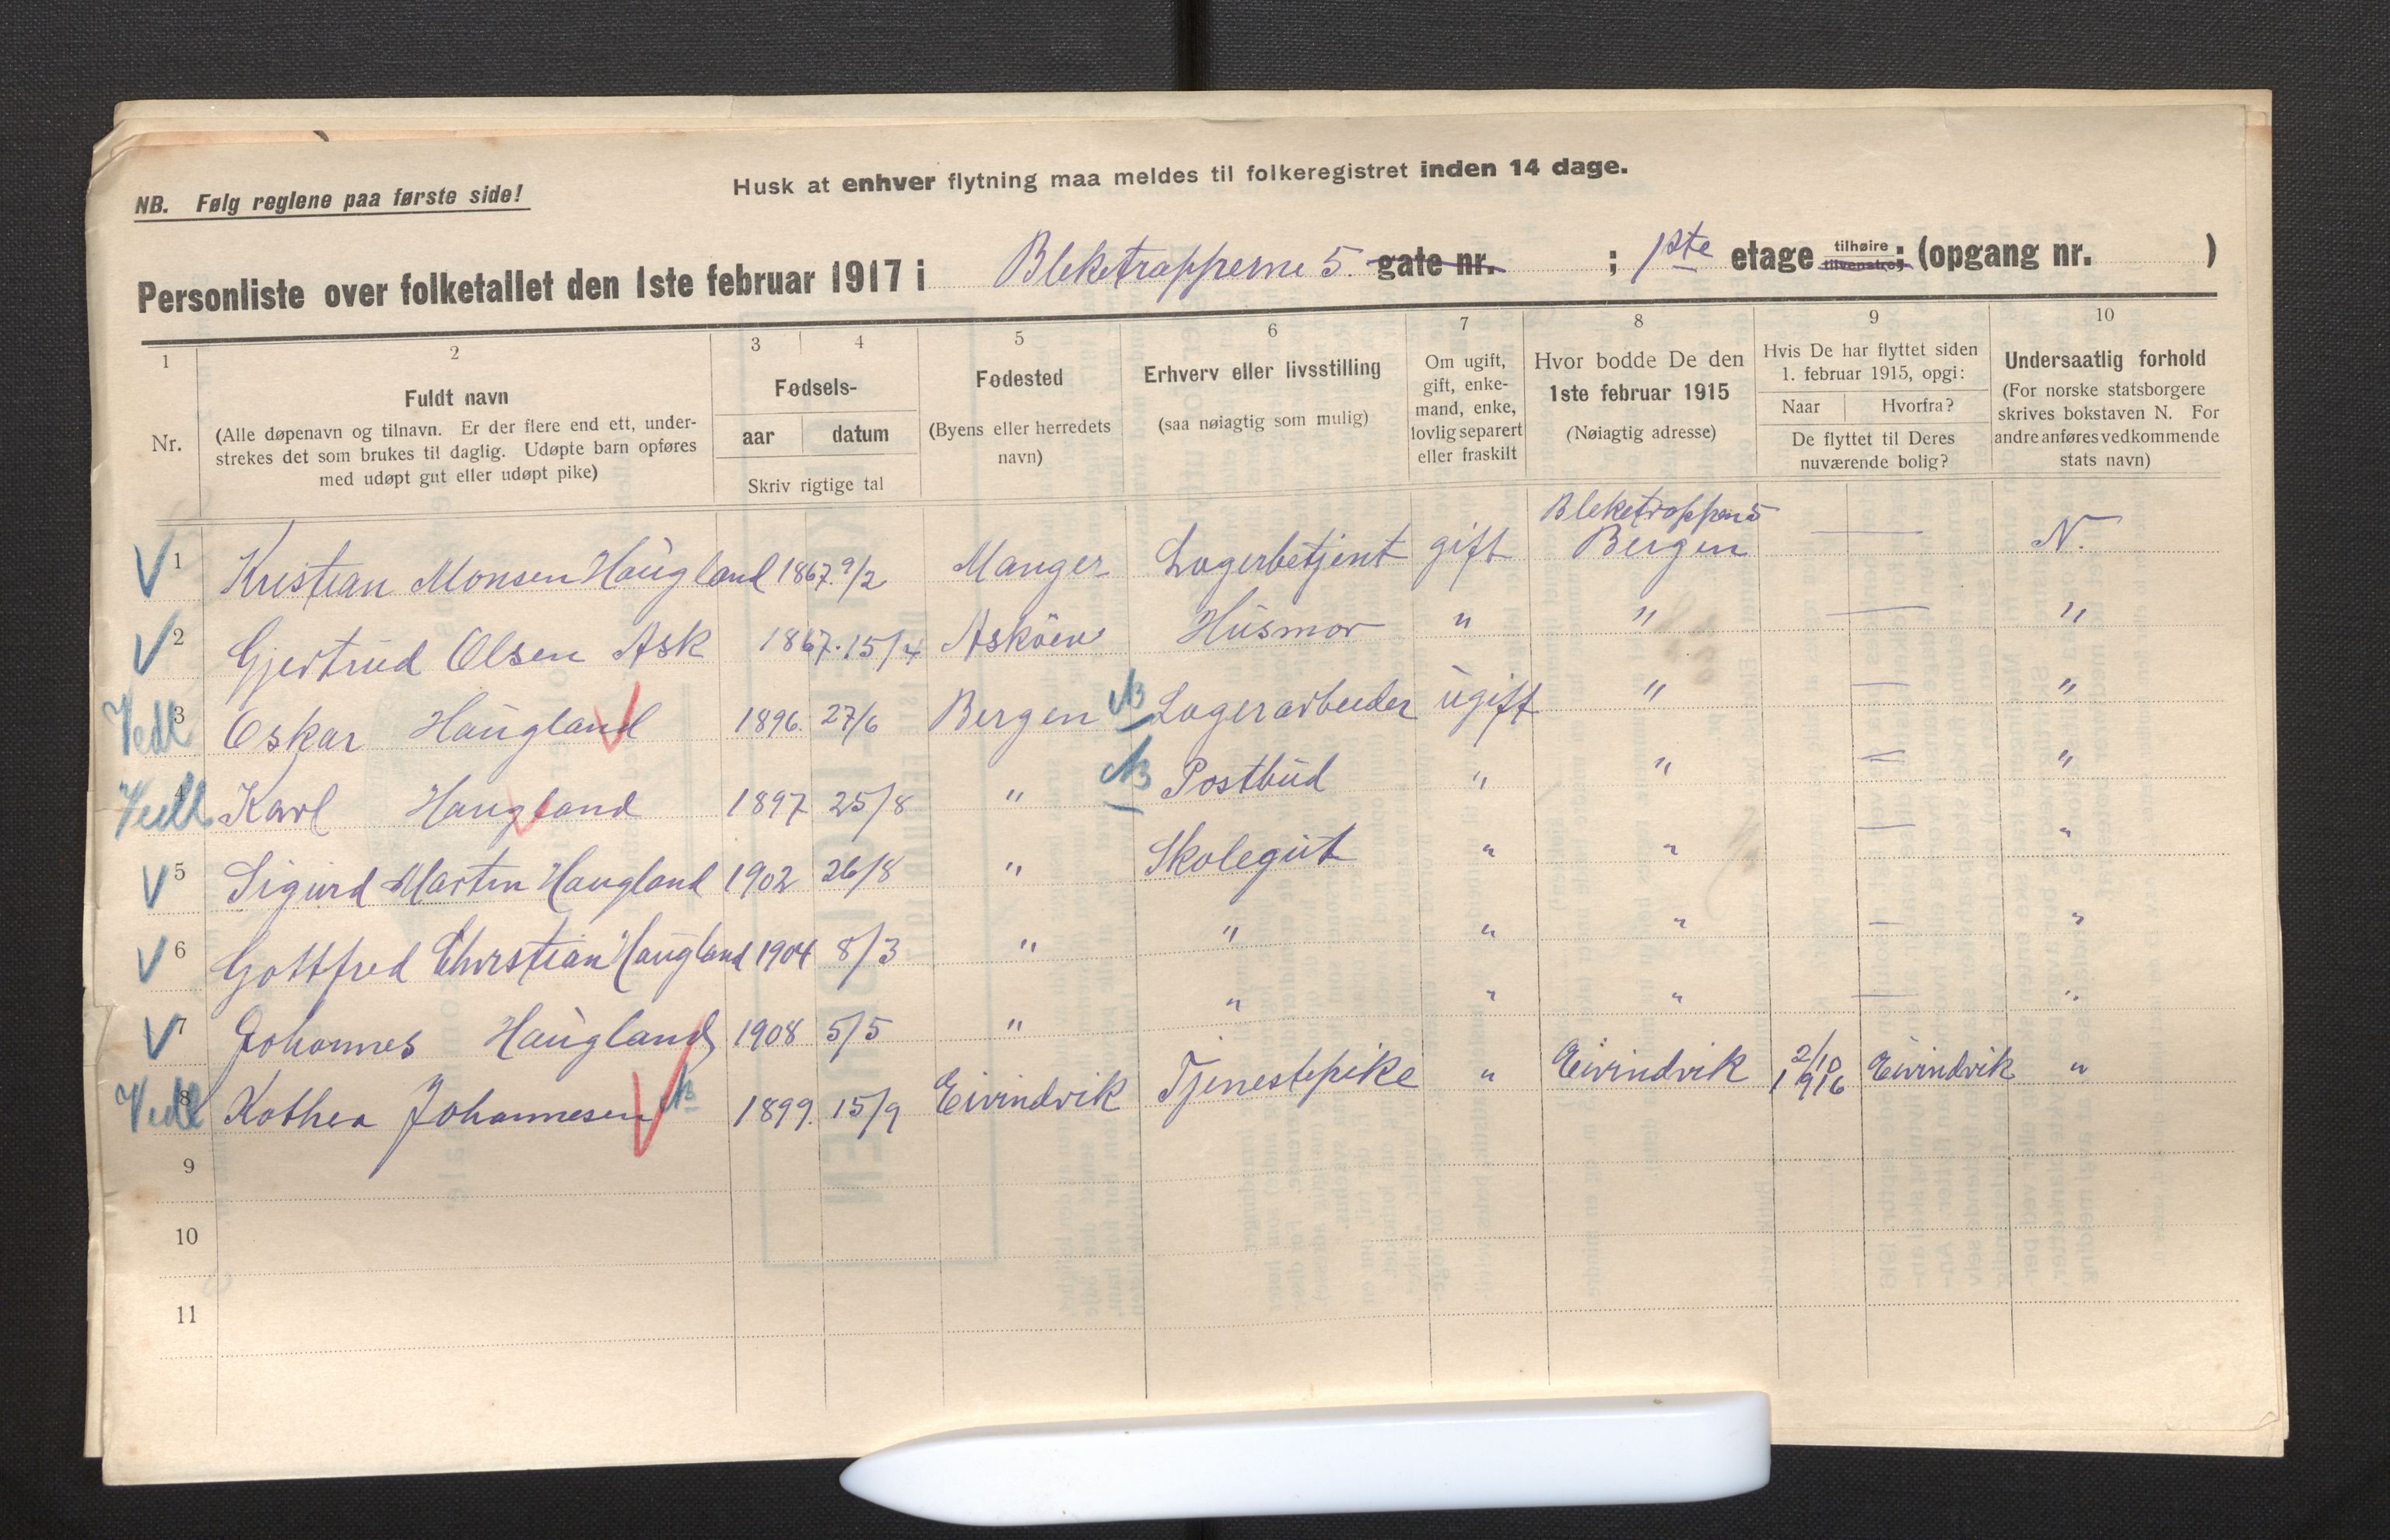 NB. Følg reglene paa første side!
Husk at enhver flytning maa meldes til folkeregistret inden 14 dage.
Personliste over folketallet den 1ste februar 1917 i Bleketrapperne 5. gate nr. ; 1ste etage tilhøire tilvenstre ; (opgang nr. )
1 2 3 4 5 6 7 8 9 10
Nr.
Fuldt navn
(Alle døpenavn og tilnavn. Er der flere end ett, under-
strekes det som brukes til daglig. Udøpte barn opføres
med udøpt gut eller udøpt pike)
Fødsels-
aar datum
Skriv rigtige tal
Fødested
(Byens eller herredets
navn)
Erhverv eller livsstilling
(saa nøiagtig som mulig)
Om ugift,
gift, enke-
mand, enke,
lovlig separert
eller fraskilt
Hvor bodde De den
1ste februar 1915
(Nøiagtig adresse)
Hvis De har flyttet siden
1. februar 1915, opgi:
Naar Hvorfra?
De flyttet til Deres
nuværende bolig?
Undersaatlig forhold
(For norske statsborgere
skrives bokstaven N. For
andre anføres vedkommende
stats navn)
Bleketrappen 5
V 1 Kristian Monsen Haugland 1867. 9/2 Manger Lagerbetjent gift Bergen — N.
V 2 Gjertrud Olsen Ask 1867. 15/4 Askøen Husmor " " — "
Vedl 3 Oskar Haugland V 1896. 27/6 Bergen NB Lagerarbeider ugift " — "
Vedl 4 Karl Haugland V 1897 25/8 " NB Postbud " " — "
V 5 Sigurd Martin Haugland 1902 26/8 " Skolegut " " — "
V 6 Gottfred Christian Haugland 1904 8/3 " " " " — "
V 7 Johannes Haugland 1908 5/5 " " " " — "
Vedl 8 Kathea Johannesen V NB 1899. 15/9 Eivindvik Tjenestepike " Eivindvik 2/10 1916 Eivindvik "
9
10
11